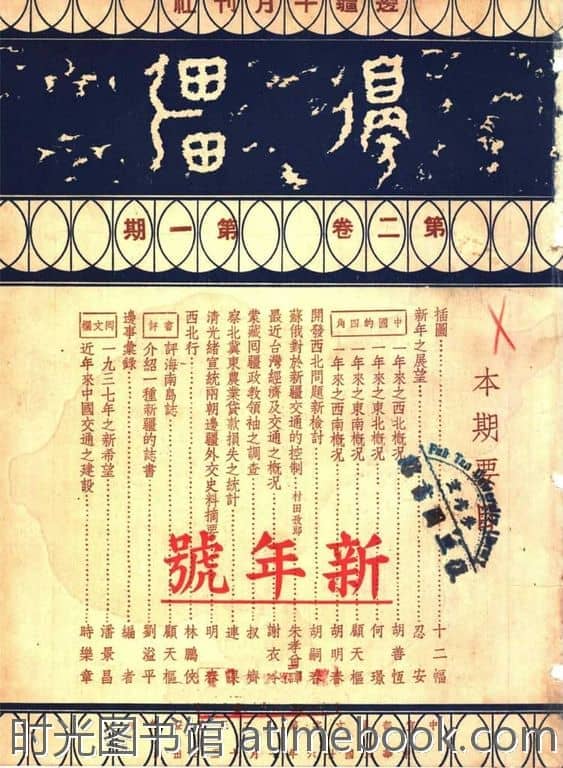 邊疆半月刊社
邊疆
第二卷 第一期
本期要
插圖……十二福
新年之展望……忍安
中國的四角
一年來之西北概況……胡善恆
一年來之東北概況……何璟
一年來之東南概況……顧天樞
一年來之西南概況……胡明春
開發西北問題新檢討……胡嗣春
蘇俄對於新疆交通的控制……村田孜郎 朱孝曾譯
最近台灣經濟及交通之概況……謝衣
蒙藏回疆政教領袖之調查……叔齊
察北冀東農業貸款損失之統計……連
清光緒宣統兩朝邊疆外交史料摘要……明春
西北行……林鵬俠
書評
評海南島誌……顧天樞
介紹一種新疆的誌書……劉溢平
邊事彙錄……編者
同文欄
一九三七年之新希望……潘景昌
近年來中國交通之建設……時樂章
新年號
时光图书馆 atimebook.com